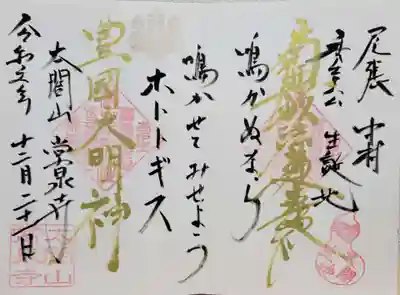 尾張 中村
豊太公 生誕地
南無妙法蓮華経
鳴かぬなら
鳴かせてみせよう
ホトトギス
豊國大明神
太閤山 常泉寺
令和 年 十二月 日